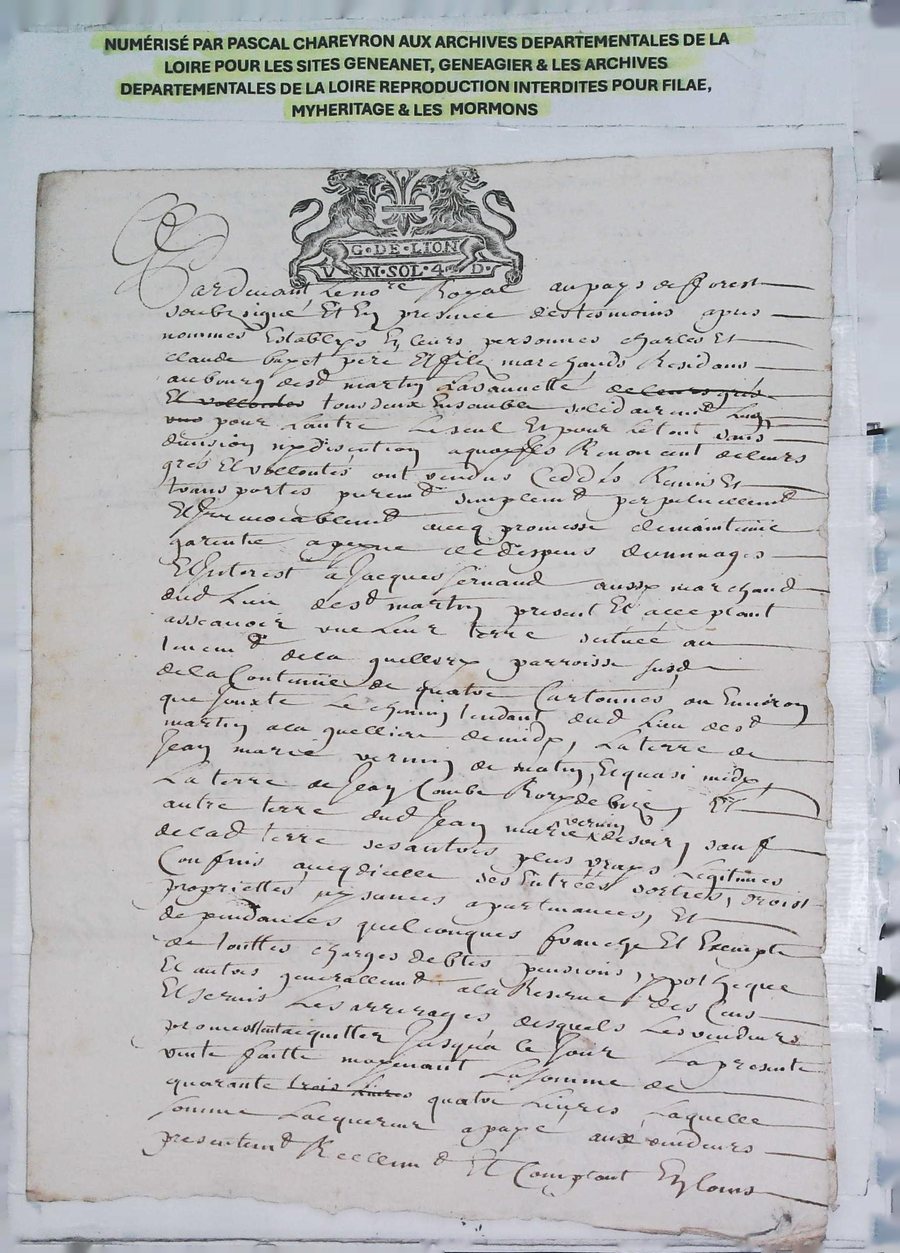 NUMÉRISÉ PAR PASCAL CHAREYRON AUX ARCHIVES DEPARTEMENTALES DE LA
LOIRE POUR LES SITES GENEANET, GENEAGIER & LES ARCHIVES
DEPARTEMENTALES DE LA LOIRE REPRODUCTION INTERDITES POUR FILAE,
MYHERITAGE & LES MORMONS
G·DE·LION
V RN·SOL·4 D·
Pardevant le no.re Royal au pays de forest
soubsigné Et En presence des tesmoins apres
nommes Establys En leurs personnes charles Et
claude pere Et fils marchands Residans
au bourg de s.t martin Lasauuetté de leurs grés
Et vollontes tous deux Ensemble solidairem.t L'un
pour l'autre Le seul Et pour le tout sans
diuision ny discution a quoy Ils Renoncent de leurs
grés Et vollontés ont vendus Ceddés Remis Et
transportés purem.t simplem.t perpetuellem.t
Et Irreuocablem.t aueq promesse de maintenir
garentie a peyne de despens dommages
Et Interest a Jacques aussy marchand
dud Lieu de s.t martin present Et acceptant
assçauoir vne Leur terre scituée au
de la parroisse susd
de la Contenüe de quatre Cartonnés ou Enuiron
que Jouxte Le chemin tendant dud Lieu de s.t
martin a la de midy, La terre de
Jean marie vernin de matin, Et quasi midy,
La terre de Jean Combe de bize, Et
autre terre dud Jean marie vernin de soir, sauf
de lad terre ses autres plus vrays Legitimes
Confins aueq d'icelle ses Entrées sorties, droist
propriettes aysances apartenances, Et
dependances quelconques franche Et Exempte
de touttes charges debtes pensions, ypotheque
Et autres generallem.t a la Reserue des Cens
Et seruis Les arrerages desquels Les vendeurs
promettent acquitter Jusqua Ce Jour La presente
vente faitte moyenant La somme de
quarante trois Liures quatre Liures, Laquelle
somme Lacquereur a payé aux vendeurs
presentem.t Reellem.t Et Comptant En Louis